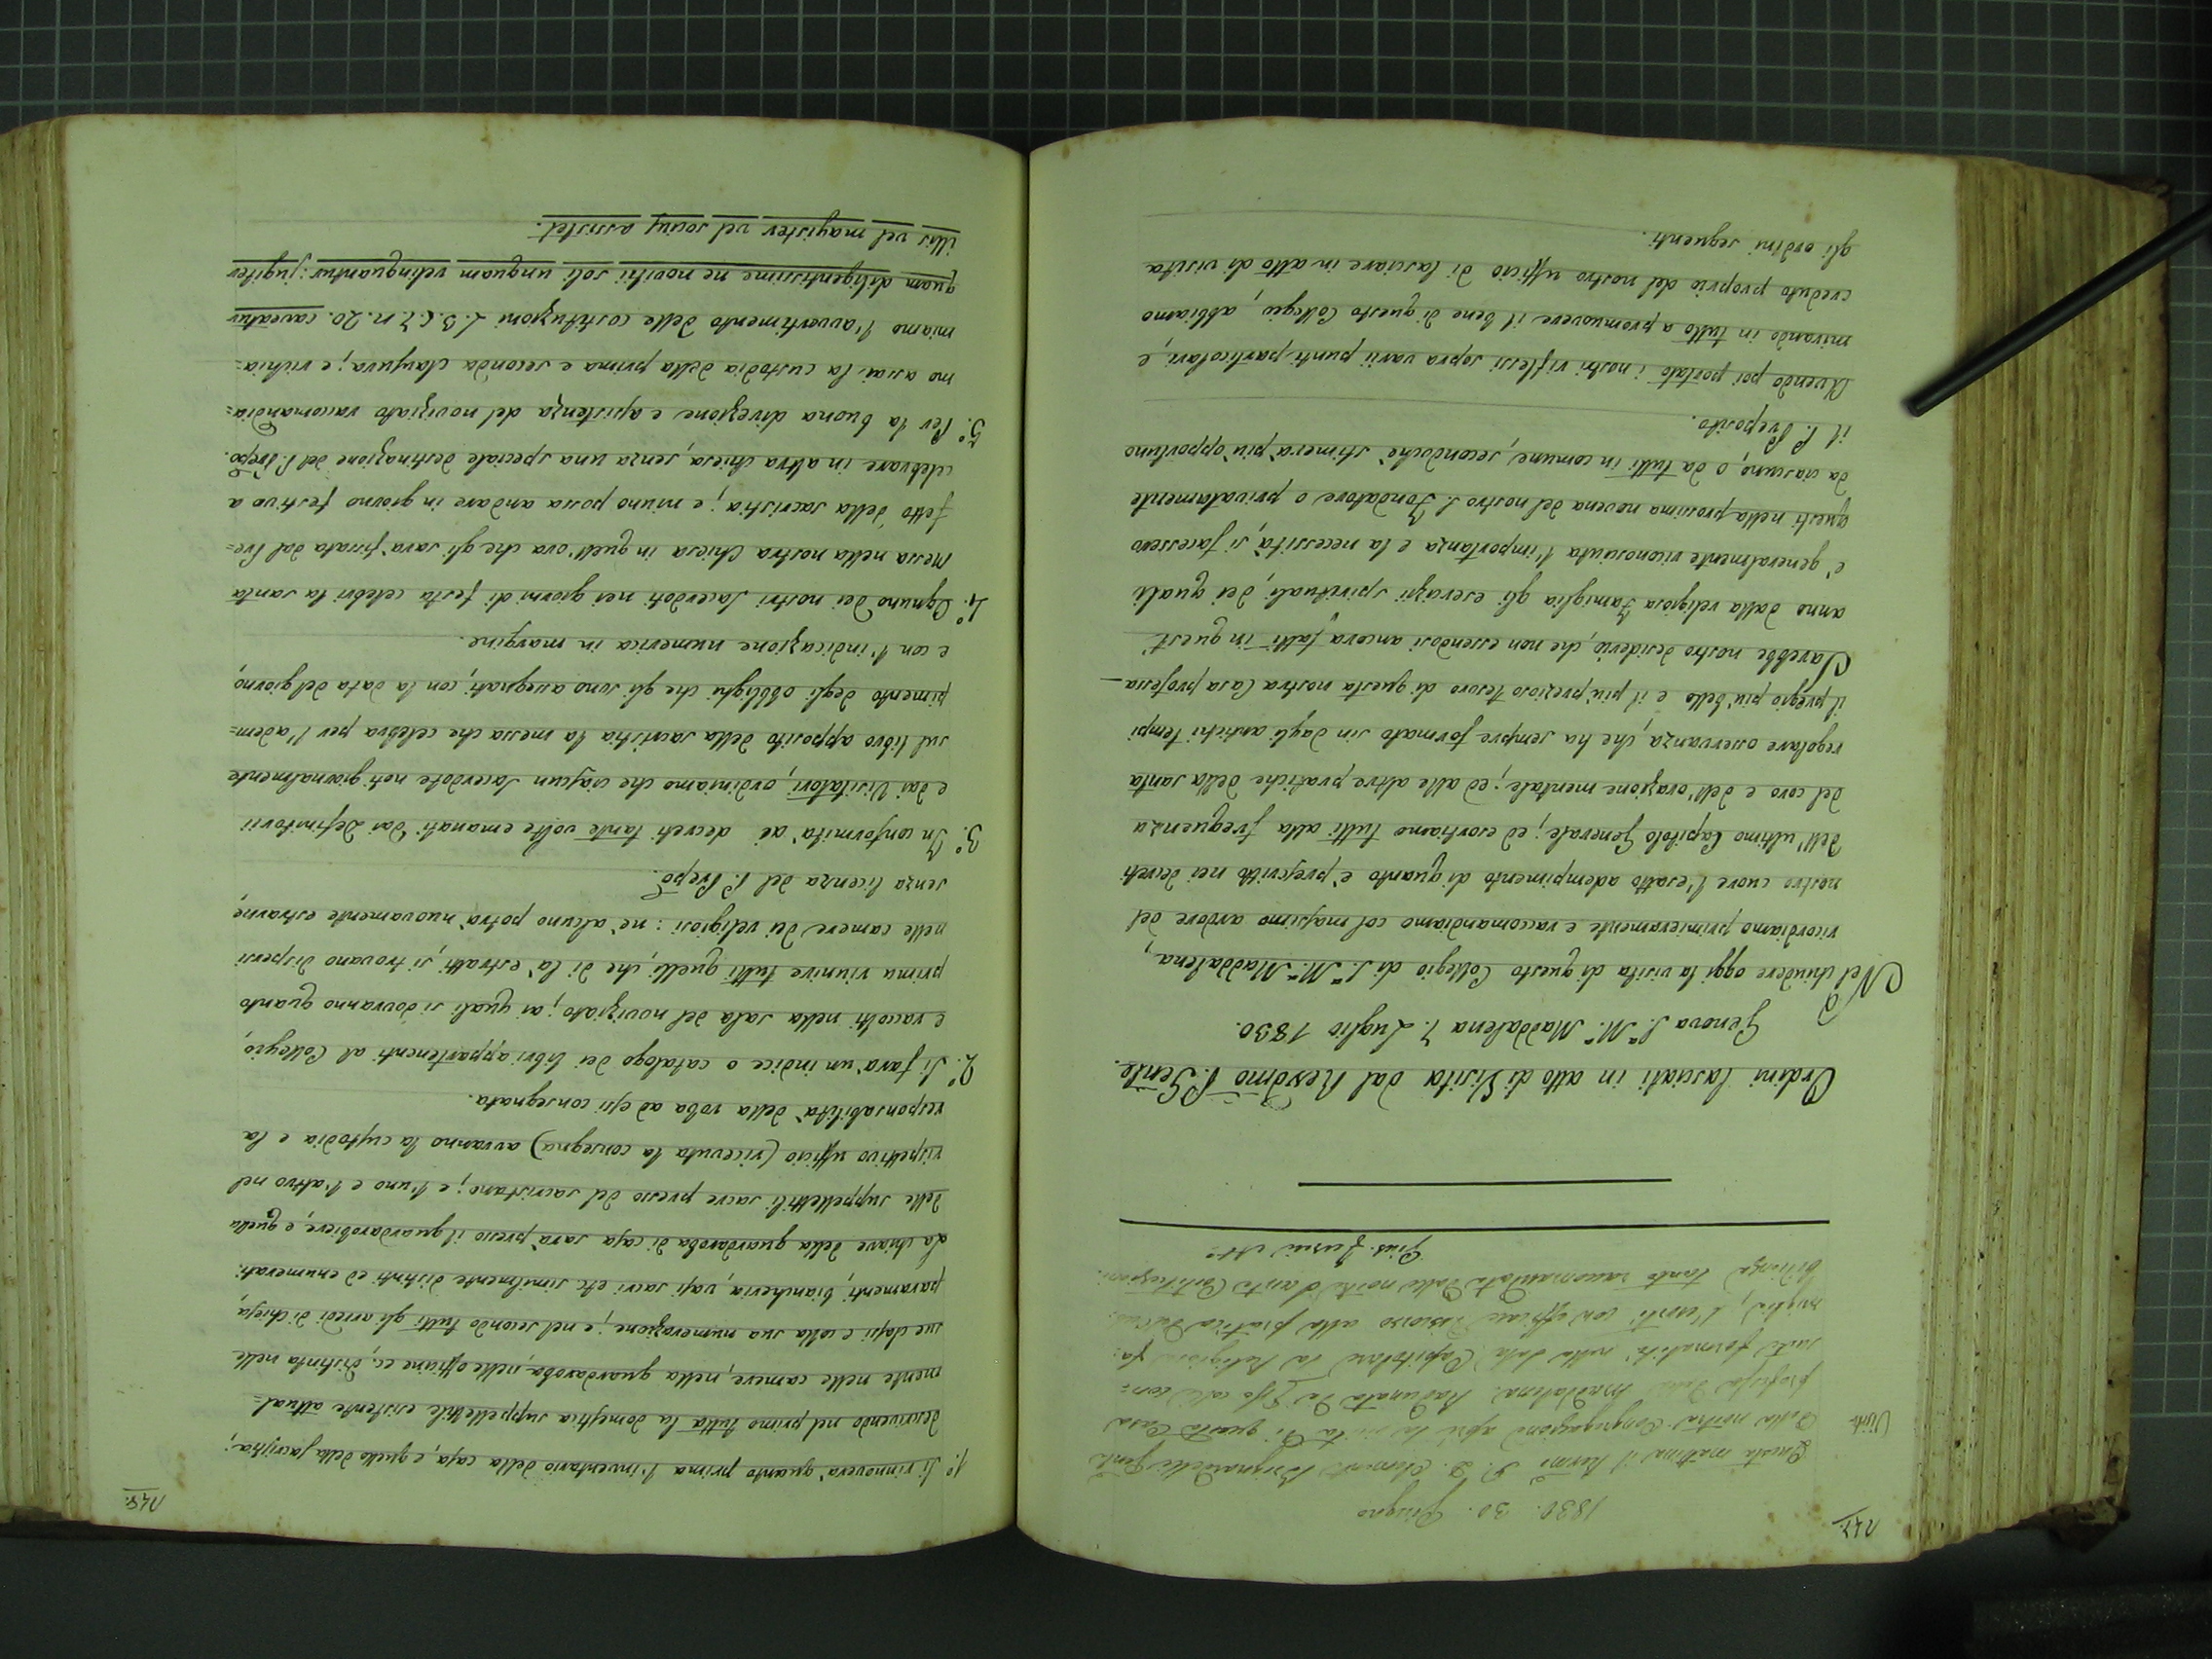 247.
1830. 30. Giugno
Questa mattina il Revmo P. D. Clemente Brignardelli Gente
Visita
della nostra Congregazione aprì la visita di questa Casa
professa della Maddalena. Radunata da Esso colle con=
suete formalità nella Sala Capitolare la Religiosa fa=
miglia, l'esortò con efficace discorso alla pratica
tanto raccomandata dalle nostre Sante Costituzioni.
Gius. Att.º
Ordini lasciati in atto di Visita dal Revdmo P. Gente.
Genova S.ª M.ª Maddalena 7. Luglio 1830.
Nel chiudere oggi la visita di questo Collegio di S.ª M.ª Maddalena,
ricordiamo primieramente e raccomandiamo col massimo ardore del
nostro cuore l'esatto adempimento di quanto è prescritto nei decreti
dell'ultimo Capitolo Generale; ed esortiamo tutti alla frequenza
del coro e dell'orazione mentale; ed alle altre pratiche della santa
regolare osservanza, che ha sempre formato sin dagli antichi tempi
il pregio più bello e il più prezioso tesoro di questa nostra Casa professa
Sarebbe nostro desiderio, che non essendosi ancora fatti in quest'
anno dalla religiosa famiglia gli esercizii spirituali, dei quali
è generalmente riconosciuta l'importanza e la necessità, si facessero
questi nella prossima novena del nostro S. Fondatore o privatamente
da ciascuno, o da tutti in comune, secondochè stimerà più opportuno
il P. Preposito.
Avendo poi portato i nostri riflessi sopra varii punti particolari, e
mirando in tutto a promuovere il bene di questo Collegio, abbiamo
creduto proprio del nostro ufficio di lasciare in atto di visita
gli ordini seguenti.
248.
1.º Si rinnoverà quanto prima l'inventario della casa, e quello della sacristia;
descrivendo nel primo tutta la domestica suppellettile esistente attual=
mente nelle camere, nella guardaroba, nelle officine ec, distinta nelle
sue classi e colla sua numerazione; e nel secondo tutti gli arredi di chiesa,
paramenti, biancheria, vasi sacri etc. similmente distinti ed enumerati.
La chiave della guardaroba di casa sarà presso il guardarobiere, e quella
delle suppellettili sacre presso del sacristano; e l'uno e l'altro nel
rispettivo ufficio (ricevuta la consegna) avranno la custodia e la
responsabilità della roba ad essi consegnata.
2.º Si farà un indice o catalogo dei libri appartenenti al Collegio,
e raccolti nella sala del noviziato; ai quali si dovranno quanto
prima riunire tutti quelli, che di là estratti, si trovano dispersi
nelle camere dei religiosi: nè alcuno potrà nuovamente estrarne,
senza licenza del P. Prepõ.
3.º In conformità ai decreti tante volte emanati dai Definitorii
e dai Visitatori, ordiniamo che ciascun Sacerdote noti giornalmente
sul libro apposito della sacristia la messa che celebra per l'adem=
pimento degli obblighi che gli sono assegnati; con la data del giorno,
e con l'indicazione numerica in margine.
4.º Ognuno dei nostri Sacerdoti nei giorni di festa celebri la santa
Messa nella nostra Chiesa in quell'ora che gli sarà fissata dal Pre=
fetto della sacristia; e niuno possa andare in giorno festivo a
celebrare in altra chiesa, senza una speciale destinazione del P. Prepõ.
5.º Per la buona direzione e assistenza del noviziato raccomandia=
mo assai la custodia della prima e seconda clausura; e richia=
miamo l'avvertimento delle costituzioni L. 3. C. 7. n. 20. caveatur
quam diligentissime ne novitii soli unquam relinquantur: jugiter
illis vel magister vel socius assistet.